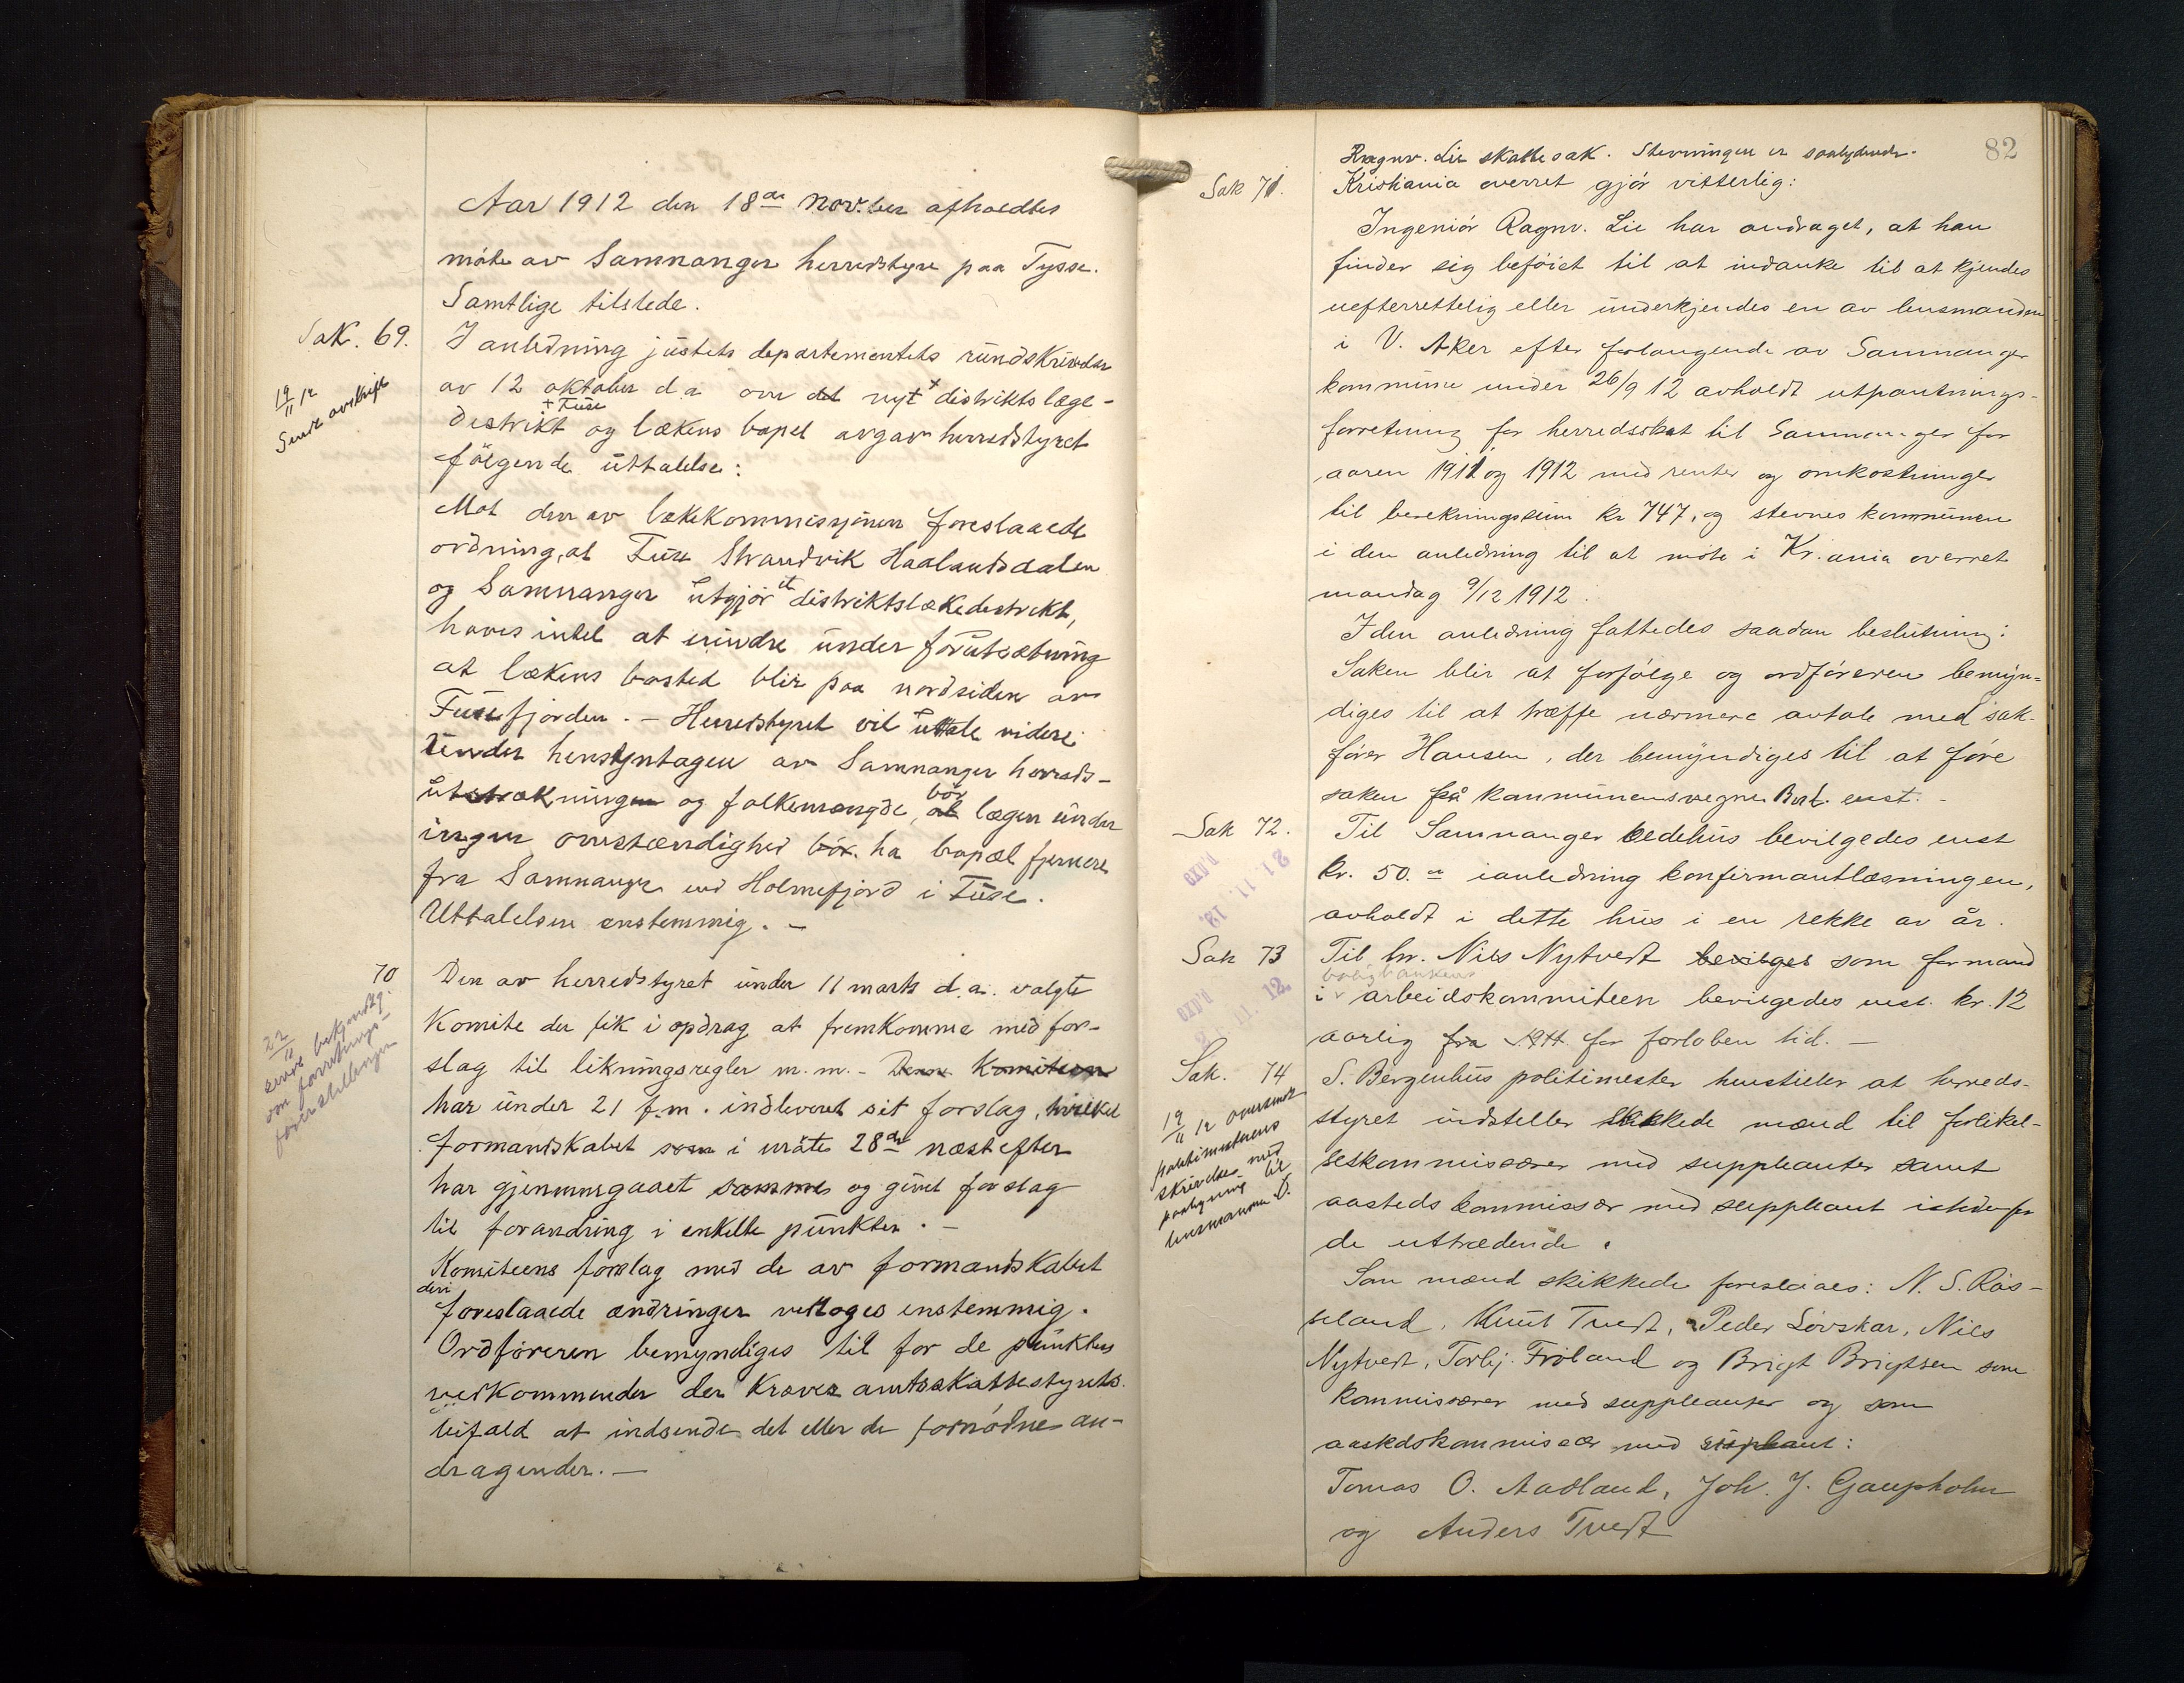 Aar 1912 den 18de Nov.ber afholdtes
möte av Samnanger herredstyre paa Tysse.
Samtlige tilstede.
Sak. 69.
I anledning justits departementets rundskrivelse
19/11 12
Sendt avskrift
av 12 oktober d.a. om det nyt + distriktslæge-
+ Fuse
distrikt og lækens bopel avgav herredstyret
fölgende uttalelse:
Mot den av lækekommissjonen foreslaaede
ordning, at Fuse Strandvik Haalandsdalen
og Samnanger utgjör et distriktslækedistrikt,
haves intet at erindre under forutsætning
at lækens bosted blir paa nordsiden av
Fusefjorden. - Herredstyret vil uttale videre:
Under hensyntagen av Samnanger herreds-
utstrækningen og folkemængde, at bör lægen under
ingen omstændighed bör ha bopæl fjernere
fra Samnanger end Holmefjord i Fuse.
Uttalelsen enstemmig. -
70
Den av herredstyret under 11 marts d.a. valgte
Komite der fik i opdrag at fremkomme med for-
22/11
sendt bekjendtg.
om forretnings-
slag til likningsregler m.m. - Denne Komiteen
har under 21 f.m. indleveret sit forslag, hvilket
formandskabet som i möte 28de næst efter
har gjennemgaaet samme og givet forslag
til forandring i enkelte punkter. -
Komiteens forslag med de av formandskabet
deri
foreslaaede ændringer vedtoges enstemmig.
Ordföreren bemyndiges til for de punkters
vedkommende der kræver amtsskattestyrets
bifald at indsende det eller de fornødne an-
dragender. -
82
Ragnv. Lie skattesak. Stevningen er saalydende.
Sak 71.
Kristiania overret gjör vitterlig:
Ingeniör Ragnv. Lie har andraget, at han
finder sig beföiet til at indanke til at kjendes
uefterrettelig eller underkjendes en av lensmanden
i V. Aker efter forlangende av Samnanger
kommune under 26/9 12 avholdt utpantnings-
forretning for herredsskat til Samnanger for
aaren 1911 og 1912 med renter og omkostninger
til berekningssum kr 747, og stevnes kommunen
i den anledning til at möte i Kr.ania overret
mandag 9/12 1912.
I den anledning fattedes saadan beslutning:
Saken blir at forfölge og ordföreren bemyn=
diges til at træffe nærmere avtale med sak-
förer Hansen, der bemyndiges til at före
saken på kommunens vegne. Besl. enst. -
Sak 72.
Til Samnanger bedehus bevilgedes enst
21 11 12
kr. 50.- ianledning konfirmantlæsningen,
avholdt i dette hus i en rekke av år.
Sak 73
Til hr. Nils Nytvedt bevilges som formand
boligbankens
i v arbeidskommiteen bevilgedes enst. kr. 12
21 11 12
aarlig fra 1911 for forloben tid. -
Sak. 74
S. Bergenhus politimester henstiller at herreds-
19/11 12 oversendt
politimesterens
skrivelse med
paategning til
lensmannen
styret indstiller skikkede mænd til forlikel-
seskommissærer med suppleanter samt
aasteds kommissær med suppleant istedenfor
de uttrædende.
Som mænd skikkede foreslaaes: N. S. Rös-
seland, Knut Tvedt, Peder Lövskar, Nils
Nytvedt, Torbj. Fröland og Brigt Brigtsen som
kommissærer med suppleanter og som
aastedskommissær med supleant:
Tomas O. Aadland, Joh. J. Gaupholm
og Anders Tvedt